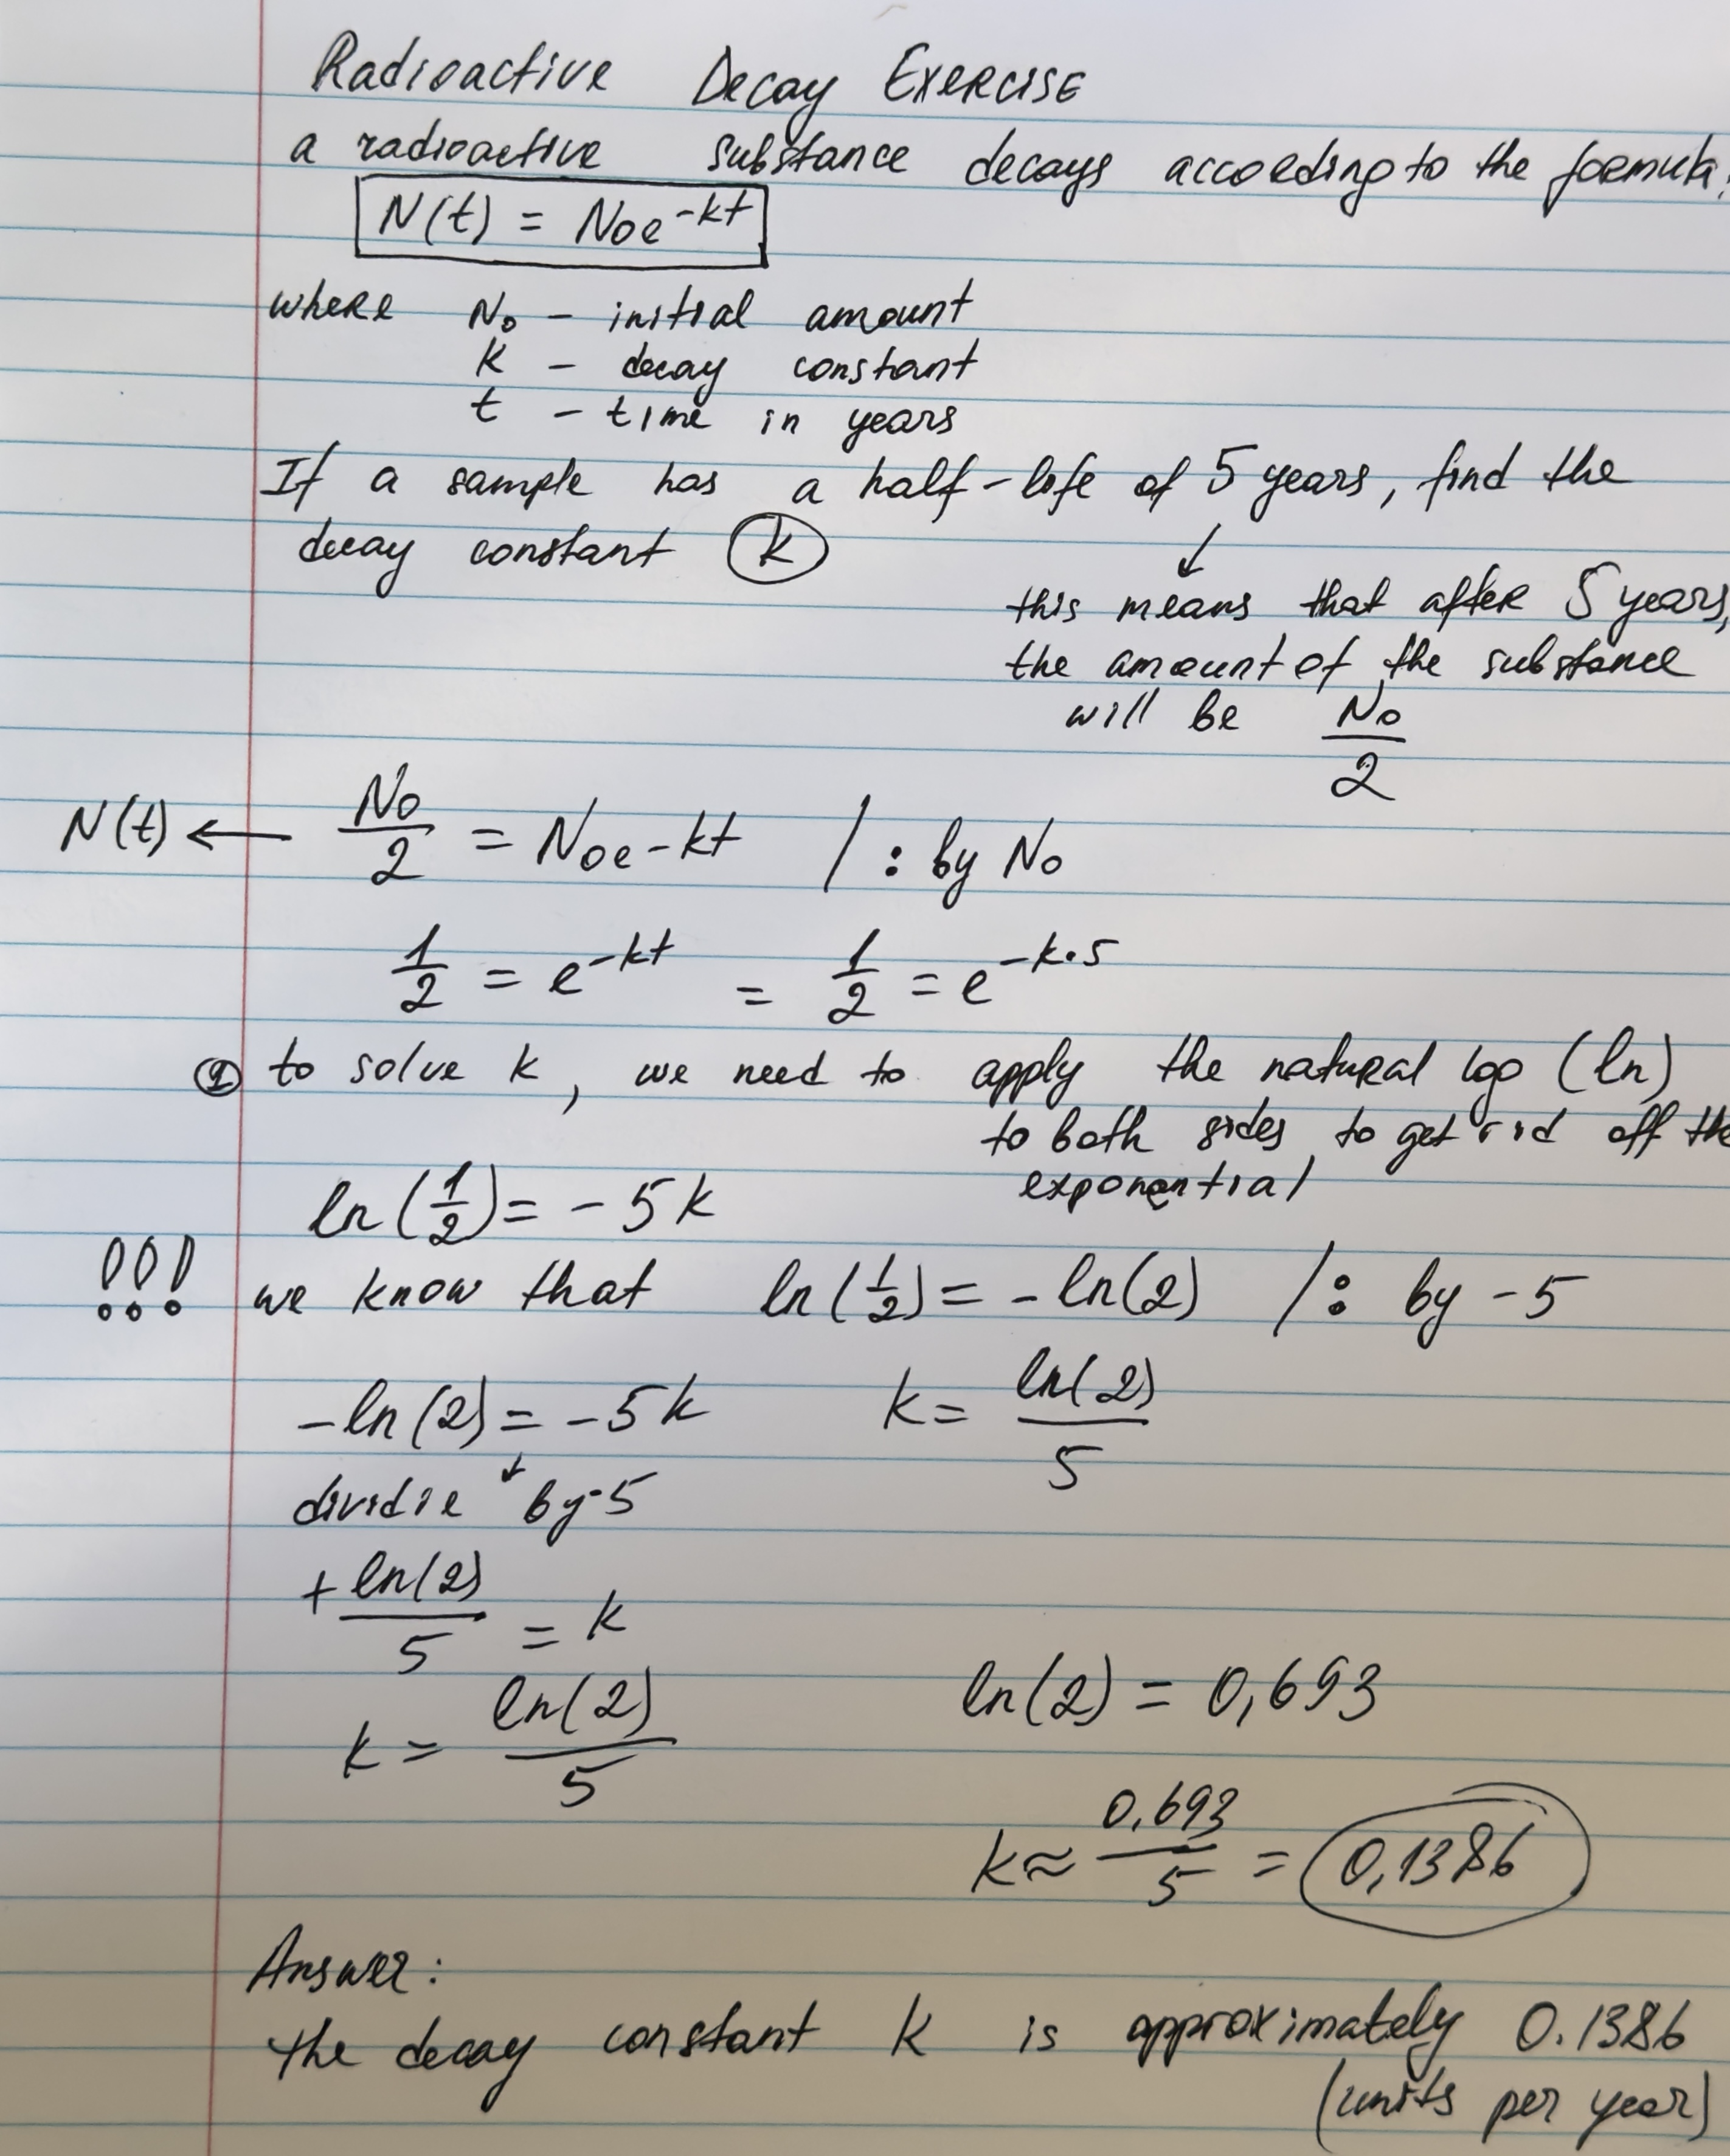 Radioactive Decay Exercise
a radioactive substance decays according to the formula:
N(t) = N₀e^-kt
where N₀ - initial amount
k - decay constant
t - time in years
If a sample has a half-life of 5 years, find the
decay constant k
↓
this means that after 5 years,
the amount of the substance
will be N₀/2
N(t) ← N₀/2 = N₀e-kt /: by N₀
1/2 = e^-kt = 1/2 = e^-k·5
① to solve k, we need to apply the natural log (ln)
to both sides to get rid off the
exponential
ln(1/2) = -5k
!!! we know that ln(1/2) = -ln(2) /: by -5
-ln(2) = -5k k = ln(2)/5
dividie ↓ by -5
+ ln(2)/5 = k
ln(2) = 0,693
k = ln(2)/5
k ≈ 0,693/5 = 0,1386
Answer:
the decay constant k is approximately 0.1386
(units per year)